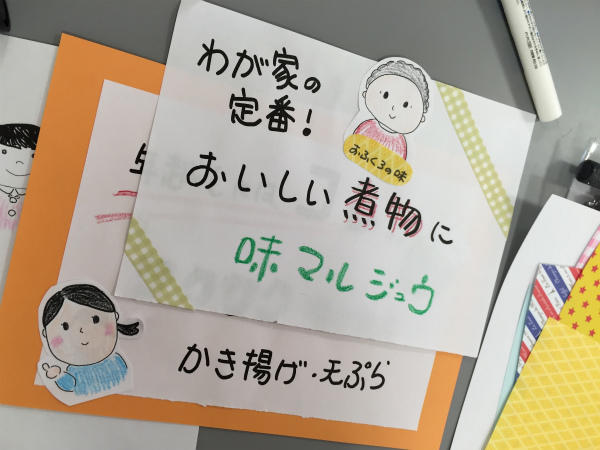 わが家の
定番!
おふくろの味
おいしい煮物に
味マルジュウ
かき揚げ・天ぷら